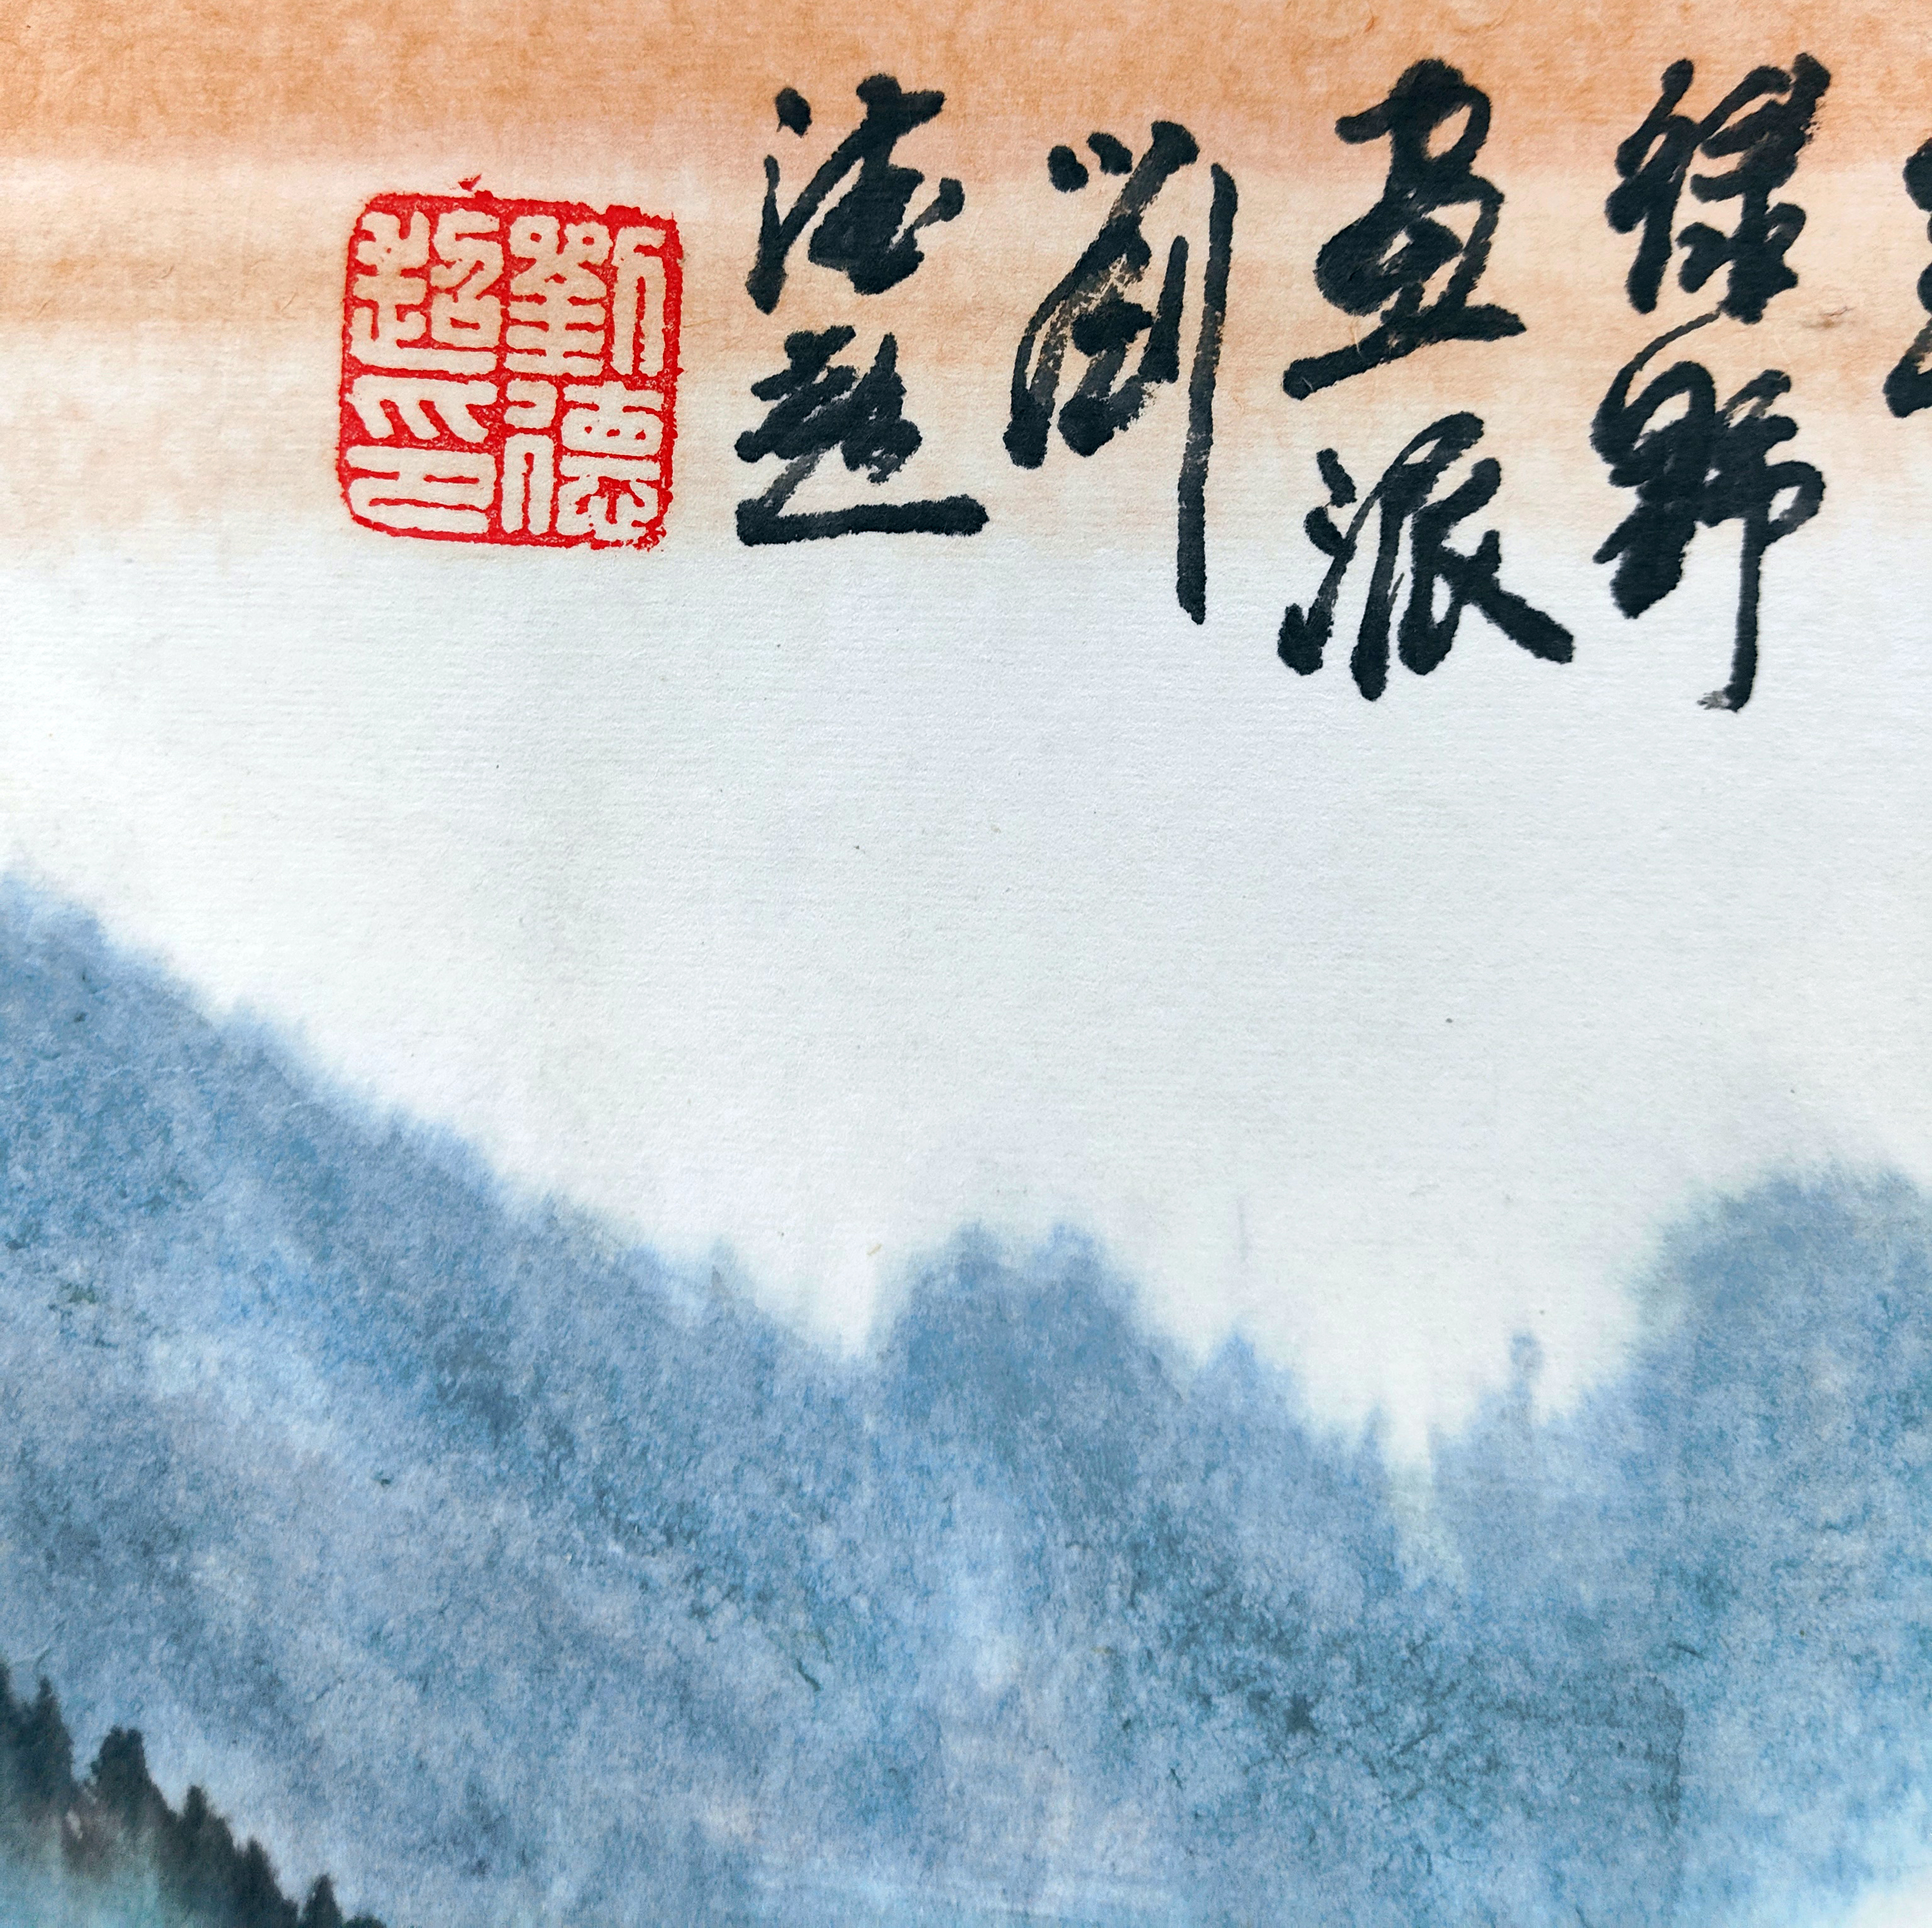 绿野
画派
劉
德超
劉德超印